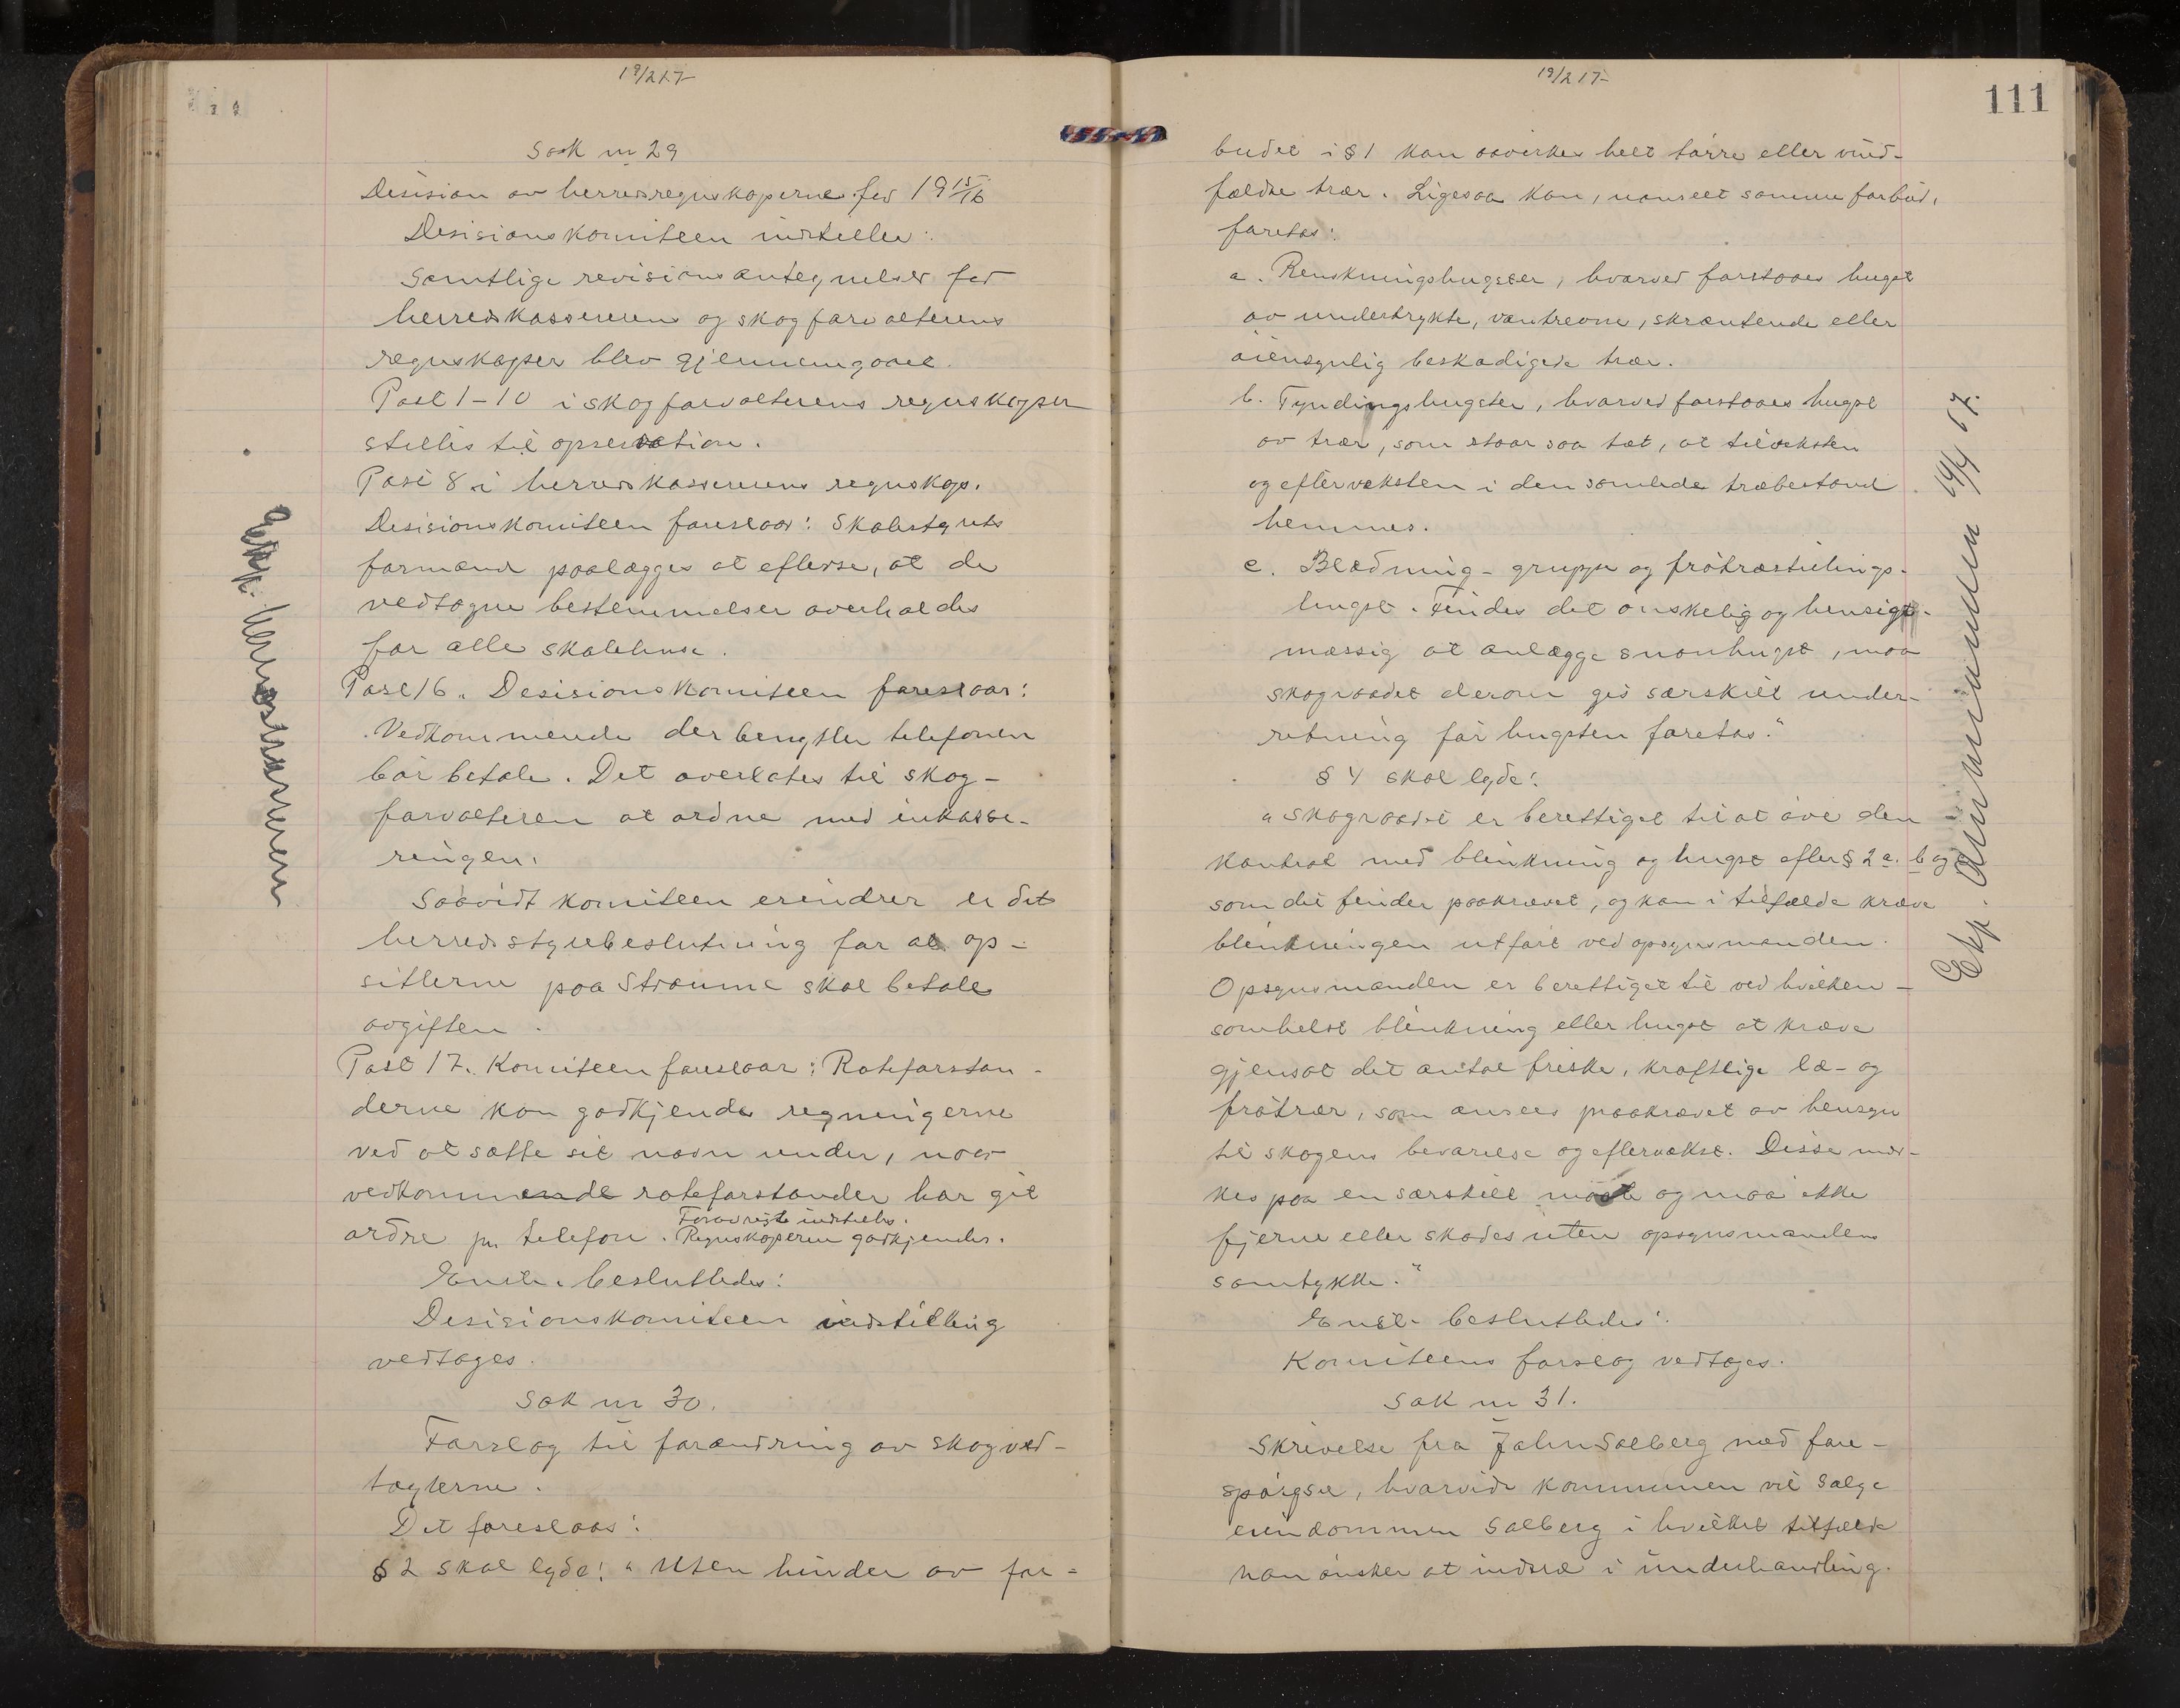 19/2 17
Sak nr 29
Desision av herredsregnskaperne for 1915/16
Desisionskomiteen indstiller:
Samtlige revisionsantegnelser for
herredskassereren og skogforvalterens
regnskaper blev gjennemgaat.
Post 1-10 i skogforvalterens regnskaper
stilles til opservation.
Post 8 i herredskassererens regnskap.
Desisionskomiteen foreslaar: Skolestyrets
formand paalægges at efterse, at de
vedtagne bestemmelser overholdes
for alle skolehuse.
Post 16. Desisionskomiteen foreslaar:
Vedkommende der benytter telefonen
bør betale. Det overlates til skog-
forvalteren at ordne med inkasse-
ringen.
Saavidt komiteen erindrer er det
herredsstyrebeslutning for at op-
sitterne paa Straume skal betale
avgiften.
Post 17. Komiteen foreslaar: Roteforstan-
derne kan godkjende regningerne
ved at sætte sit navn under, naar
vedkommende roteforstander har git
ordre pr. telefon. Forøvrigt indstilles:
Regnskaperne godkjendes.
Enst. besluttedes:
Desisionskomiteen indstilling
vedtages.
Sak nr 30.
Forslag til forandring av skogved-
tægterne.
Det foreslaaes:
§ 2 skal lyde: "Uten hinder av for-
Exp. herredskassereren
19/2 17
111
budet i § 1 kan avvirkes helt tørre eller vind-
fældte trær. Ligesaa kan, uanseet samme forbud,
foretas:
a. Renskningshugster, hvorved forstaaes hugst
av undertrykte, vantrevne, skrantende eller
øiensynlig beskadigede trær.
b. Tyndingshugster, hvorved forstaaes hugst
av trær, som staar saa tæt, at tilveksten
og efterveksten i den samlede træbestand
hemmes.
c. Blædning- gruppe og frøtræstillings-
hugst. Findes det ønskelig og hensigts-
mæssig at anlægge snauhugst, maa
skograadet derom gis særskilt under-
retning før hugsten foretas."
§ 4 skal lyde:
"Skograadet er berettiget til at øve den
kontrol med blinkning og hugst efter § 2 a. b og c
som det finder paakrævet, og kan i tilfælde kræve
blinkningen utført ved opsynsmanden.
Opsynsmanden er berettiget til ved hvilken-
somhelst blinkning eller hugst at kræve
gjensat det antal friske, kraftige læ- og
frøtrær, som ansees paakrævet av hensyn
til skogens bevarelse og eftervekst. Disse mær-
kes paa en særskilt maate og maa ikke
fjernes eller skades uten opsynsmandens
samtykke."
Enst. besluttedes:
Komiteens forslag vedtages.
Sak nr 31.
Skrivelse fra John Solberg med fore-
spørgsel, hvorvidt kommunen vil sælge
eiendommen Solberg i hvilket tilfælde
han ønsker at indtræ i underhandling.
Exp. 14/4 17.